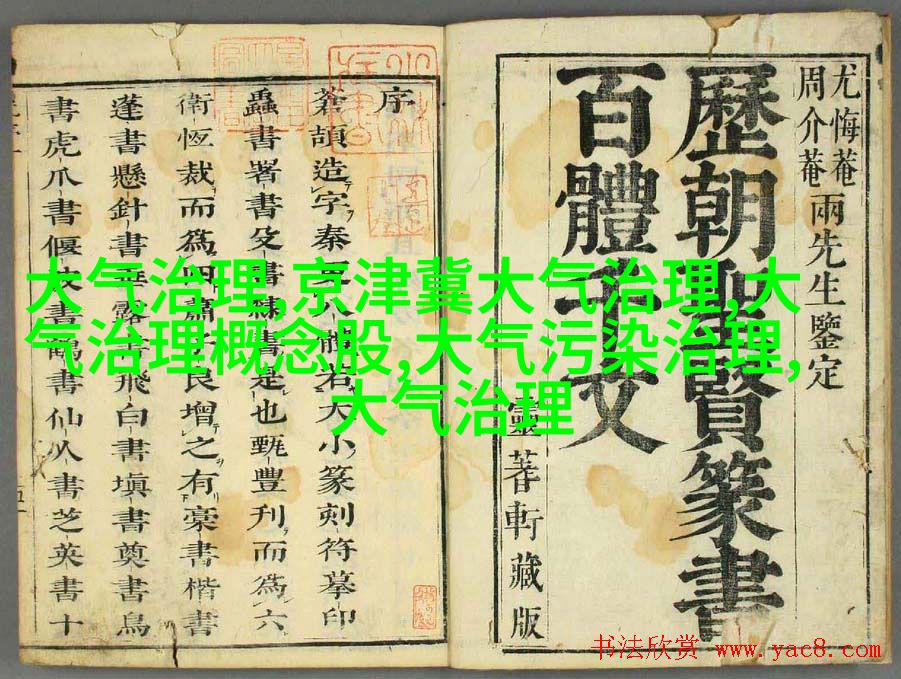 大气治理,京津冀大气治理,大
气治理概念股,大气污染治理,
大气治理
尤悔菴
周介菴
兩先生鑒定
歷朝聖賢篆書
百體千文
靈蓍軒藏版
序
蒼頡造字秦八體若大小篆刻符摹印
蟲書署書殳書隸書是也甄豐刋而爲六
衛恆裁而爲四蕭良增之有稾書楷書
蓬書懸針書垂露書飛白書塡書奠書鳥
書虎爪書偃波書鶴書仙人書芝英書十
书法欣赏 www.yac8.com